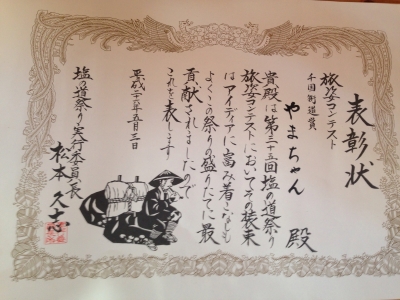 表彰状
旅姿コンテスト
千国街道賞
やまちゃん 殿
貴殿は第三十五回塩の道祭り
旅姿コンテストにおいてその装束
はアイディアに富み着こなしも
よくこの祭りの盛りたてに最
貢献されましたので
これを表します
平成二十六年五月三日
塩の道祭り実行委員長
松本久志